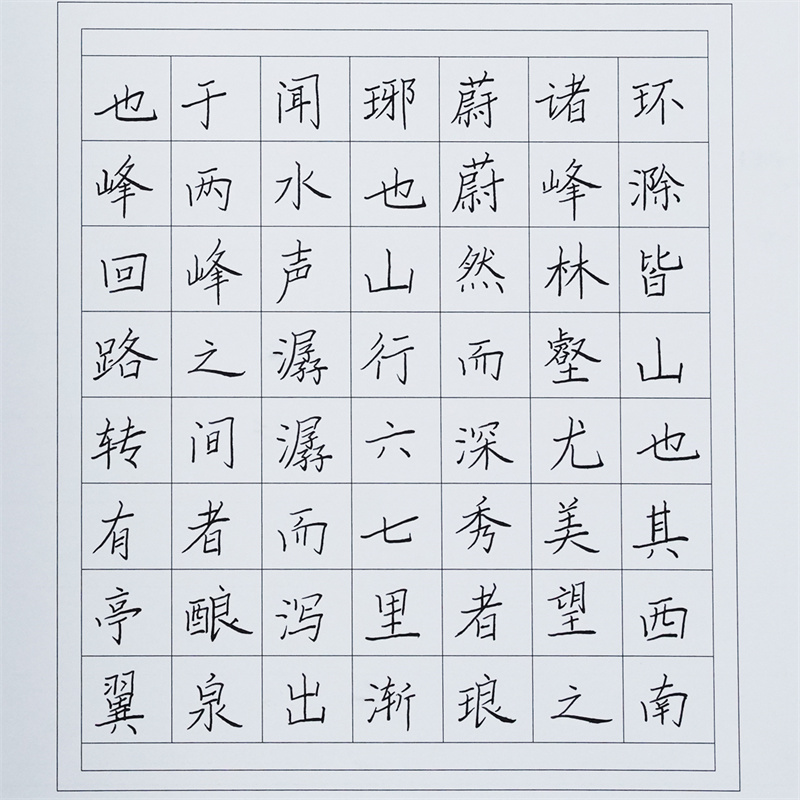 环滁皆山也其西南
诸峰林壑尤美望之
蔚蔚然而深秀者琅
琊也山行六七里渐
闻水声潺潺而泻出
于两峰之间者酿泉
也峰回路转有亭翼